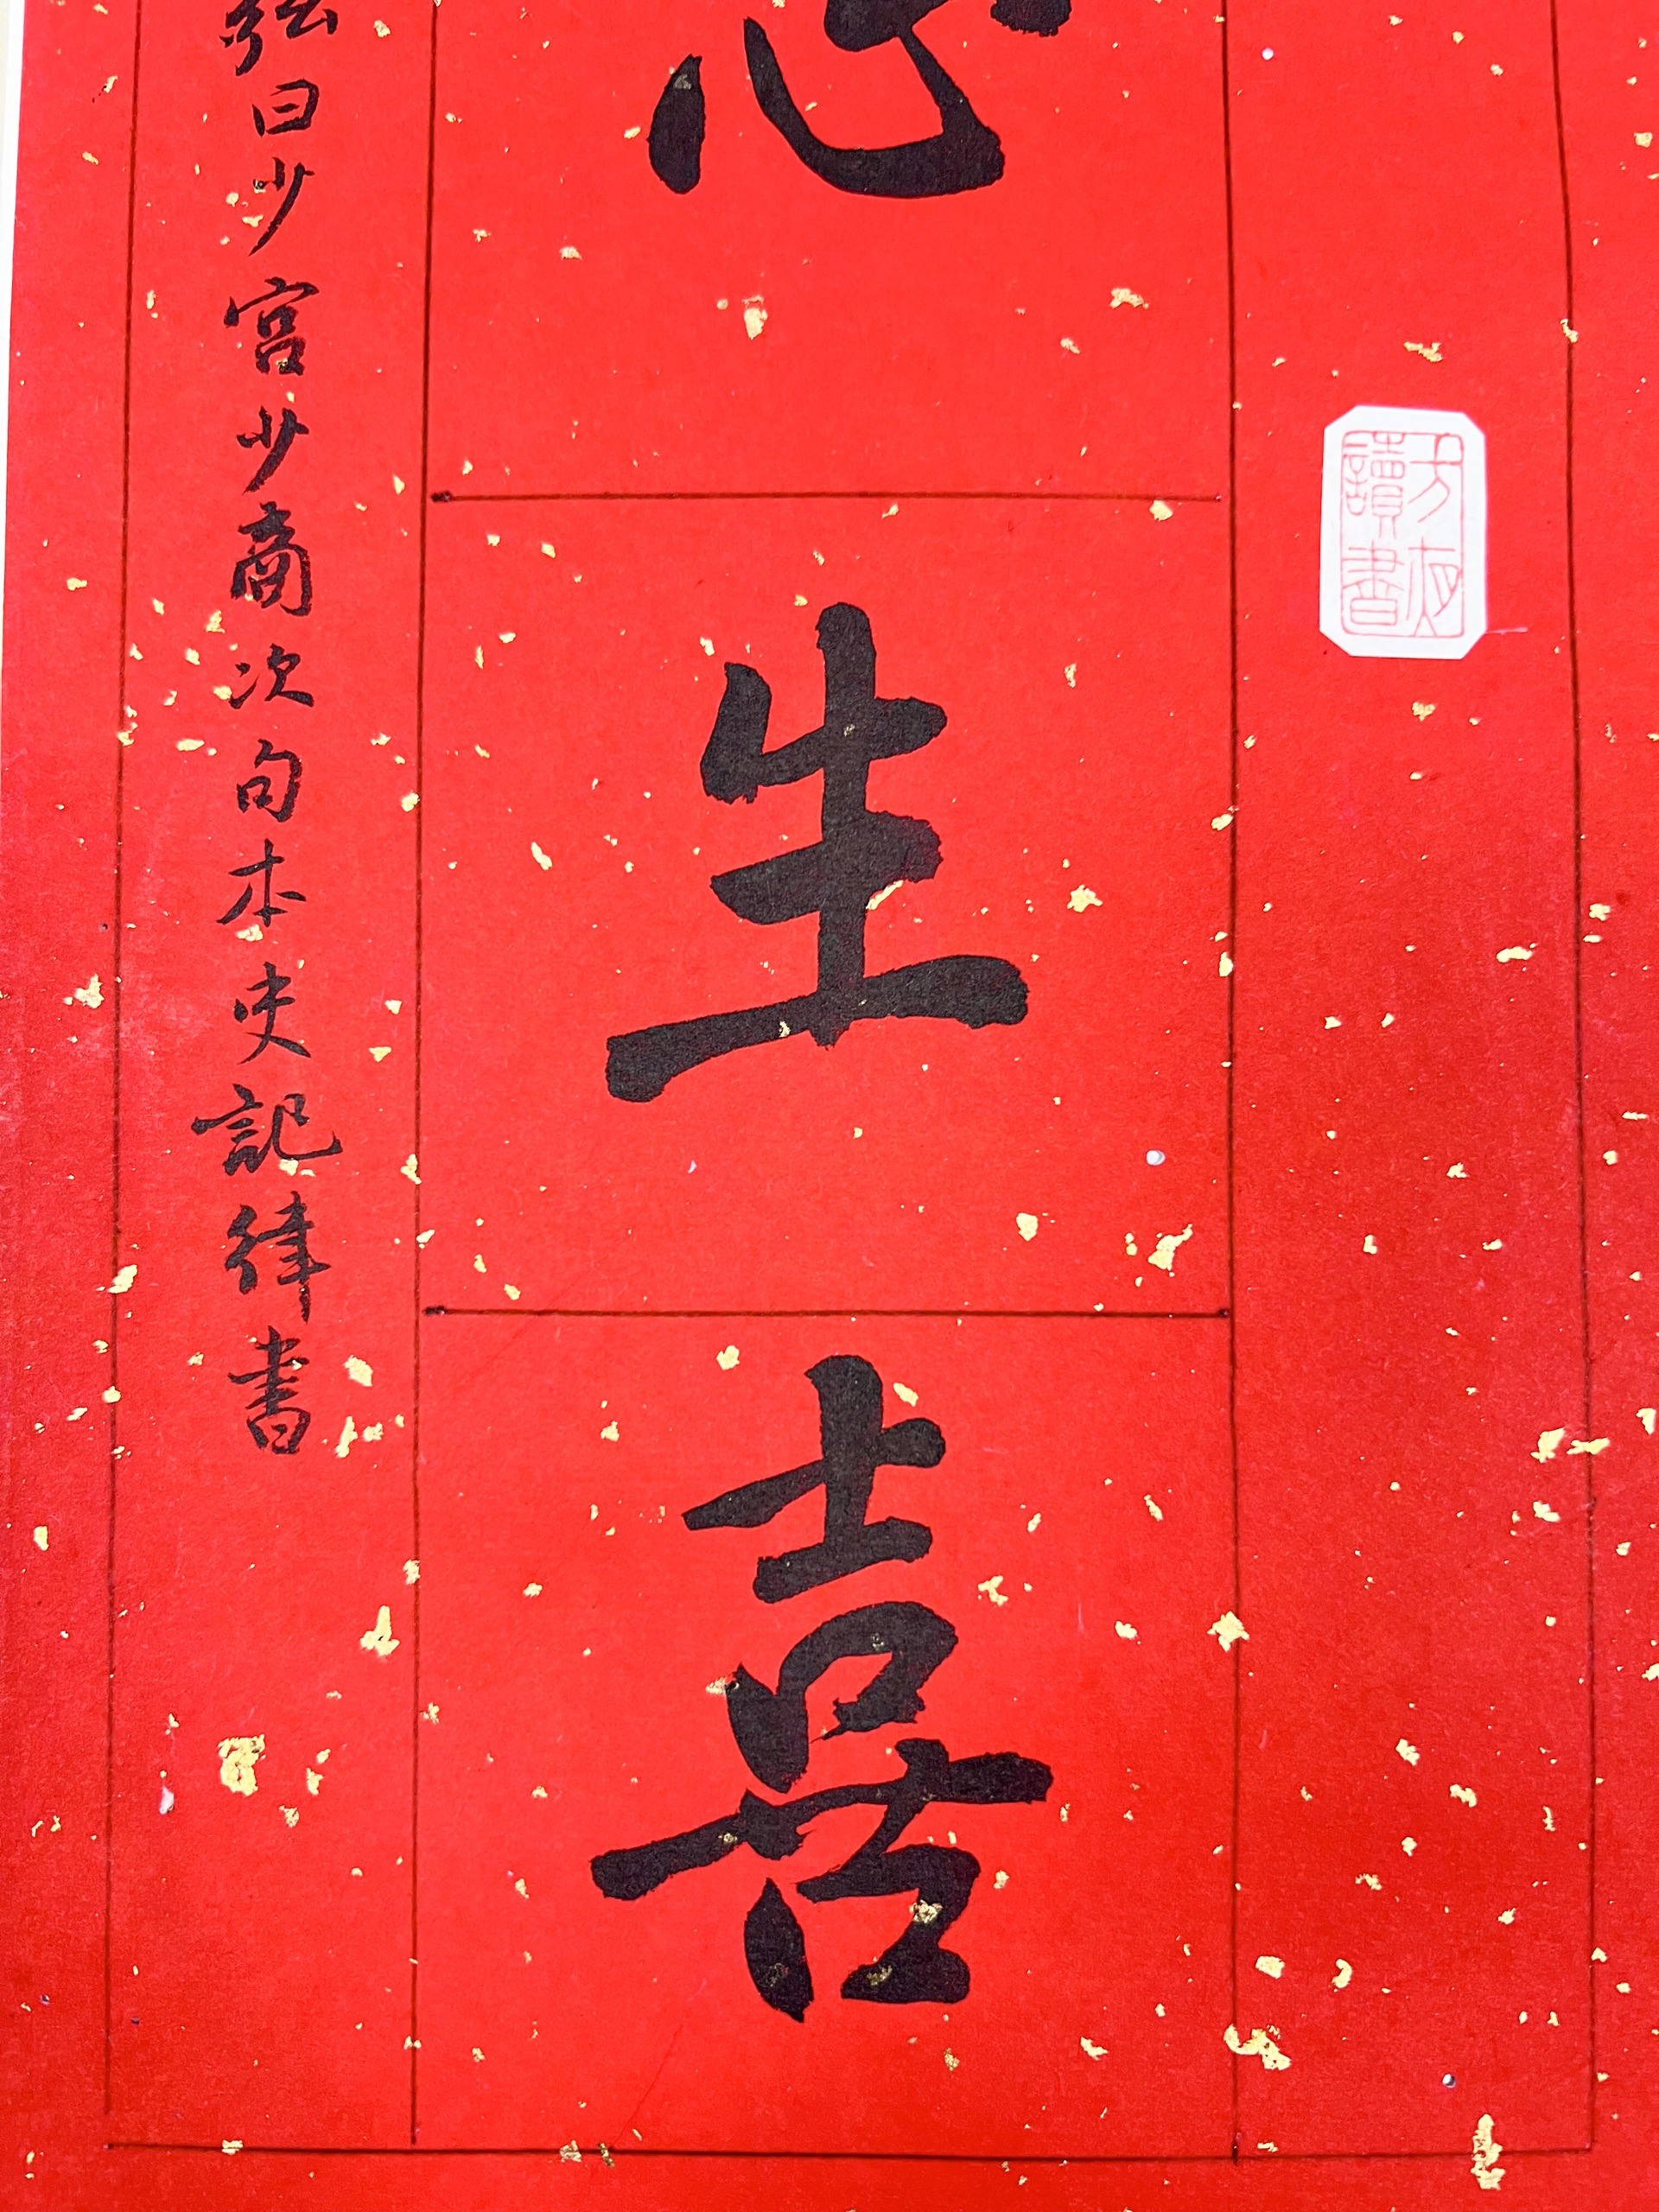 方夜
讀書
生喜
曰少宮少商次句本史記律書